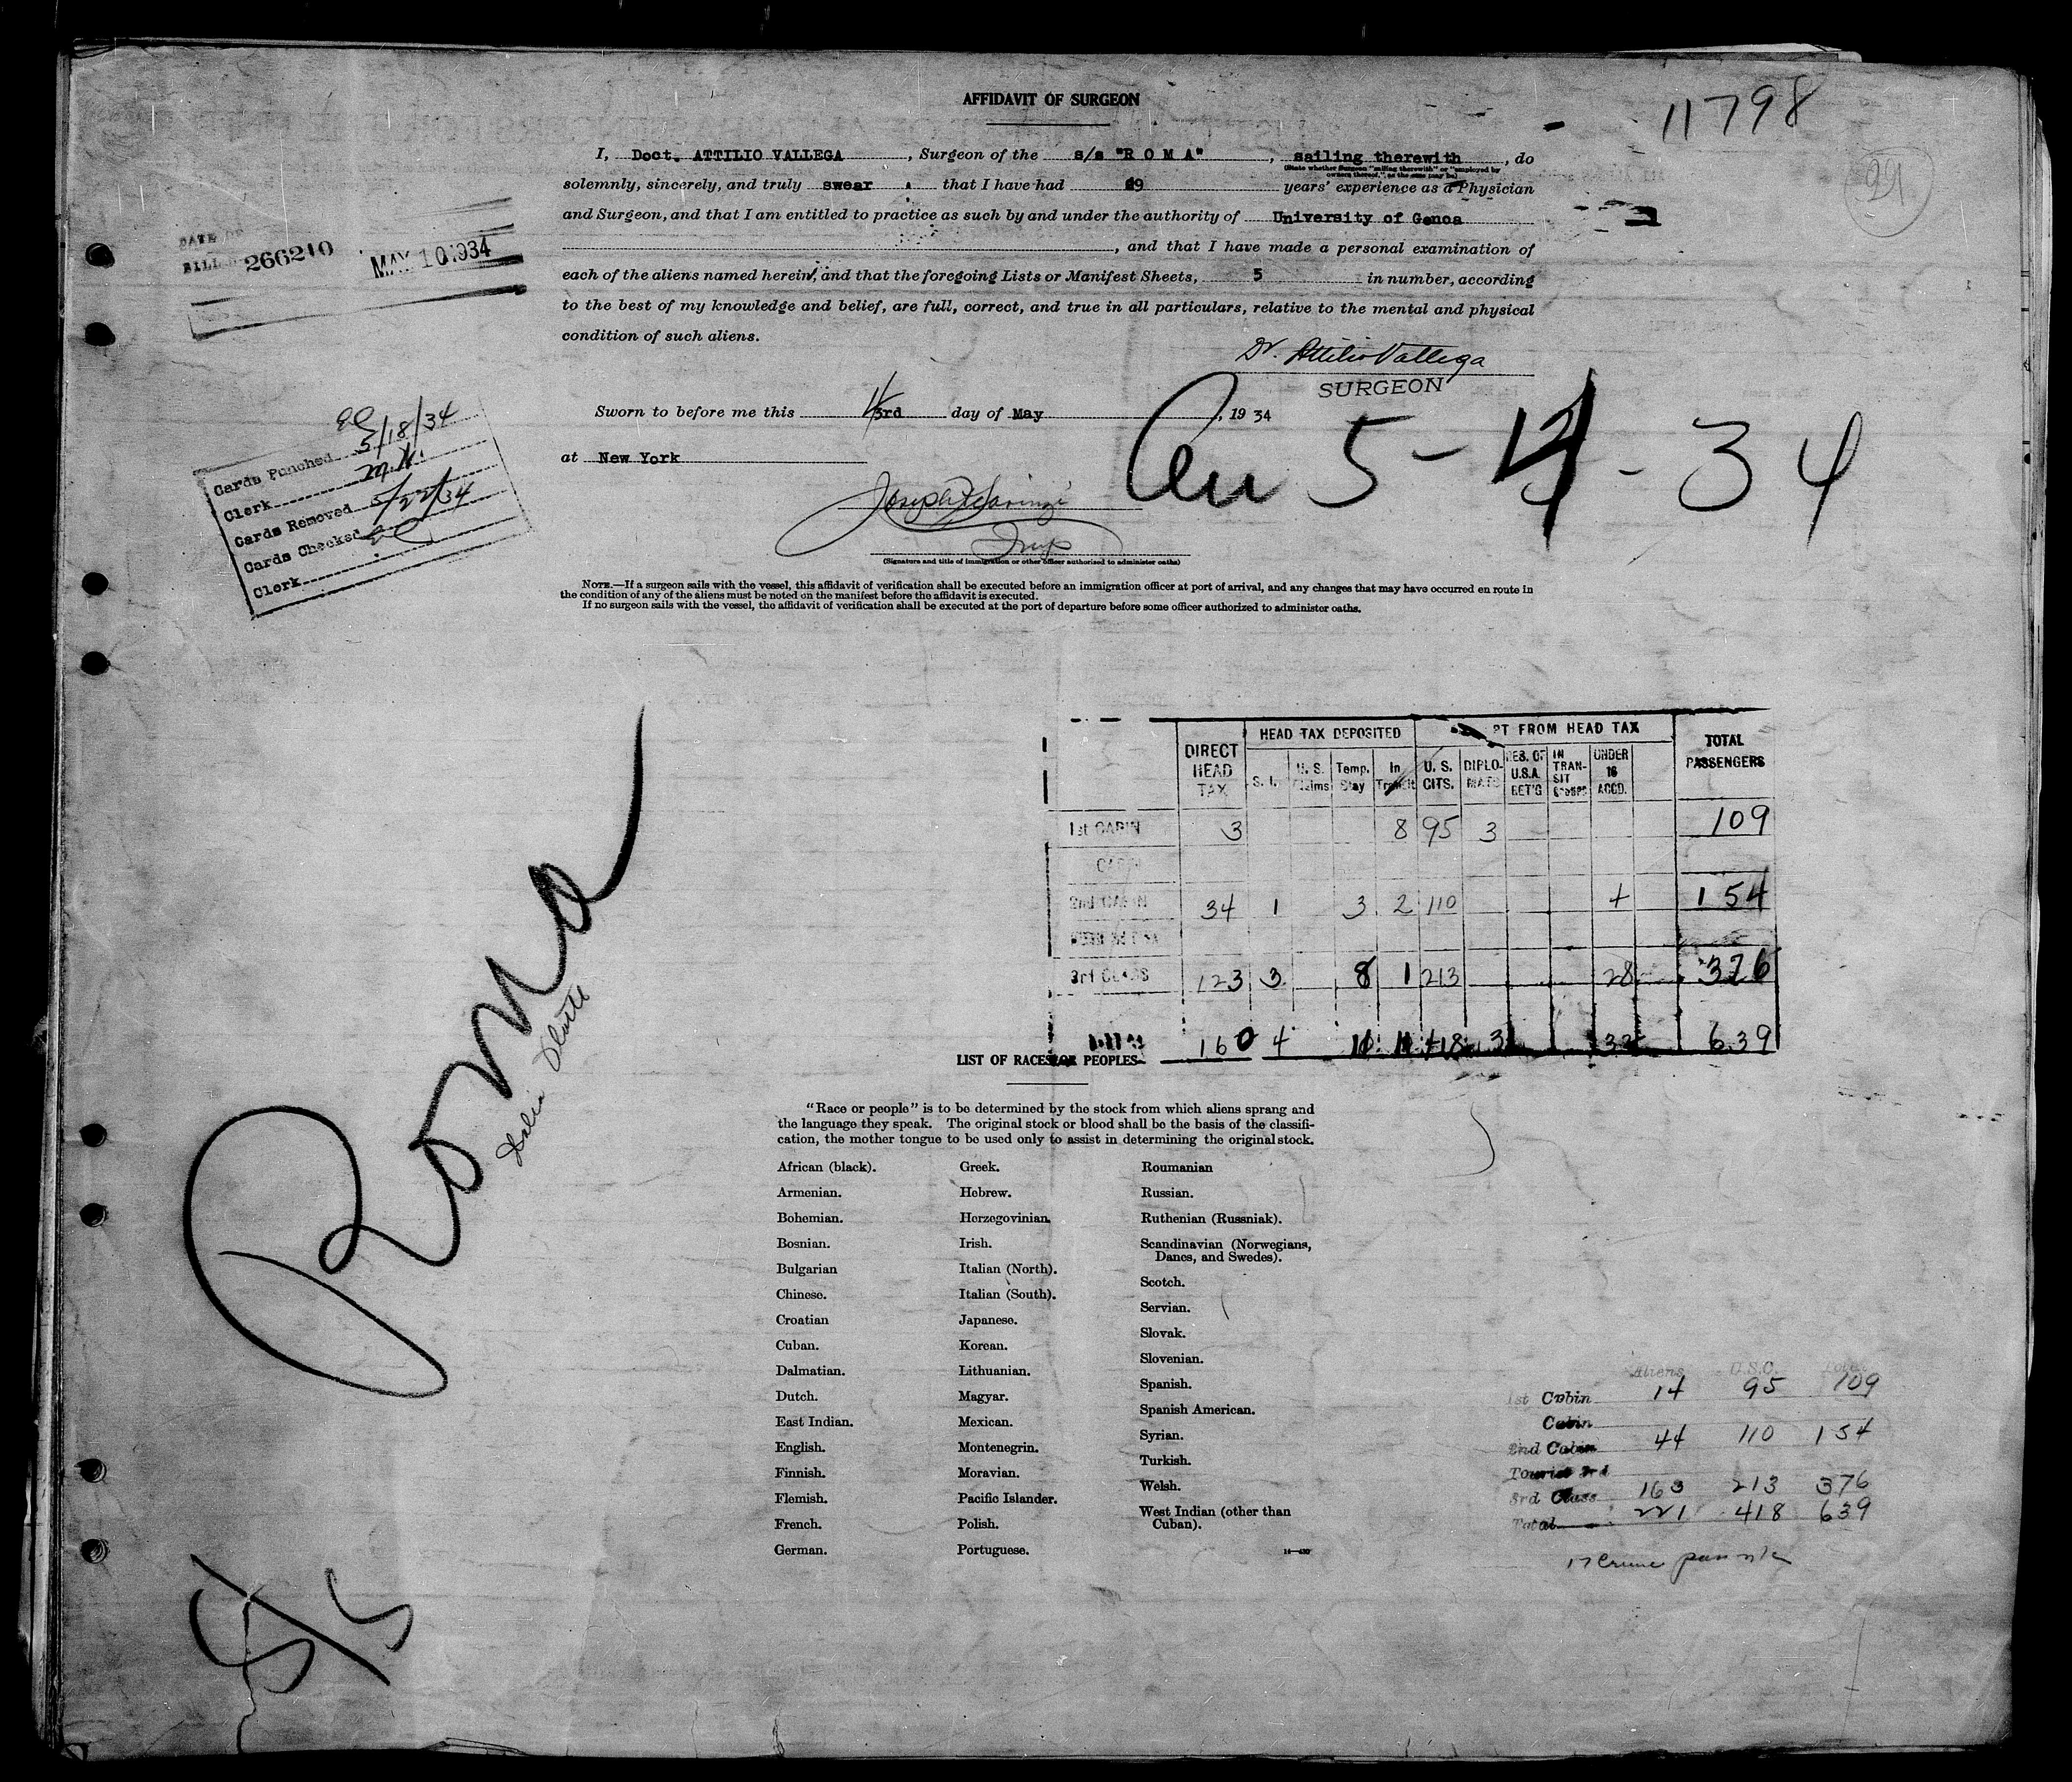 AFFIDAVIT OF SURGEON
11798
I, Doct. ATTILIO VALLEGA, Surgeon of the s/s "R O M A", sailing therewith, do
(State whether Surgeon "sailing therewith" or "employed by owners thereof," as the case may be)
solemnly, sincerely, and truly swear that I have had 9 years' experience as a Physician
and Surgeon, and that I am entitled to practice as such by and under the authority of University of Genoa
, and that I have made a personal examination of
each of the aliens named herein, and that the foregoing Lists or Manifest Sheets, 5 in number, according
to the best of my knowledge and belief, are full, correct, and true in all particulars, relative to the mental and physical
condition of such aliens.
266210 MAY 10 1934
Dr. Attilio Vallega
SURGEON
Sworn to before me this 3rd day of May, 1934
at New York
5 - - 34
(Signature and title of immigration or other officer authorized to administer oaths)
Cards Punched 5/18/34
Clerk M.K.
Cards Removed 5/22/34
Cards Checked
Clerk
NOTE.—If a surgeon sails with the vessel, this affidavit of verification shall be executed before an immigration officer at port of arrival, and any changes that may have occurred en route in
the condition of any of the aliens must be noted on the manifest before the affidavit is executed.
If no surgeon sails with the vessel, the affidavit of verification shall be executed at the port of departure before some officer authorized to administer oaths.
DIRECT HEAD TAX HEAD TAX DEPOSITED PT FROM HEAD TAX TOTAL PASSENGERS
S. I. U. S. Claims Temp. Stay In Transit U. S. CITS. DIPLOMATS RES. OF U.S.A. RET'G IN TRANSIT UNDER 16 ACCD.
1st CABIN 3 8 95 3 109
CABIN
2nd CABIN 34 1 3 2 110 4 154
3rd CLASS 123 3 8 1 213 28 376
160 4 11 11 418 3 32 639
Roma
Italia
S/S
LIST OF RACES OR PEOPLES
"Race or people" is to be determined by the stock from which aliens sprang and
the language they speak. The original stock or blood shall be the basis of the classifi-
cation, the mother tongue to be used only to assist in determining the original stock.
African (black).
Armenian.
Bohemian.
Bosnian.
Bulgarian
Chinese.
Croatian
Cuban.
Dalmatian.
Dutch.
East Indian.
English.
Finnish.
Flemish.
French.
German.
Greek.
Hebrew.
Herzegovinian.
Irish.
Italian (North).
Italian (South).
Japanese.
Korean.
Lithuanian.
Magyar.
Mexican.
Montenegrin.
Moravian.
Pacific Islander.
Polish.
Portuguese.
Roumanian
Russian.
Ruthenian (Russniak).
Scandinavian (Norwegians,
Danes, and Swedes).
Scotch.
Servian.
Slovak.
Slovenian.
Spanish.
Spanish American.
Syrian.
Turkish.
Welsh.
West Indian (other than
Cuban).
Aliens U.S.C. Total
1st Cabin 14 95 109
Cabin
2nd Cabin 44 110 154
Tourist 3rd
3rd Class 163 213 376
Total 221 418 639